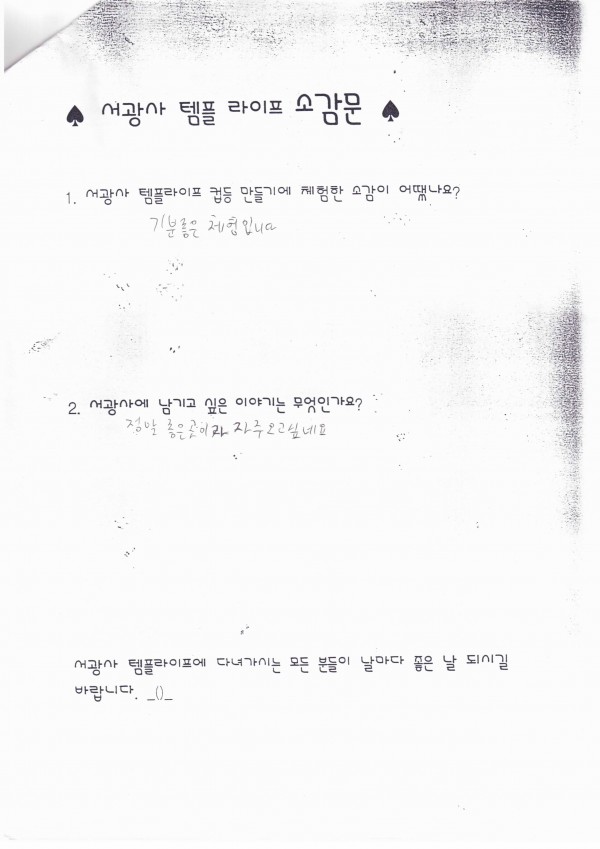 ♠ 서광사 템플 라이프 소감문 ♠
1. 서광사 템플라이프 컵등 만들기에 체험한 소감이 어땠나요?
기분좋은 체험입니다
2. 서광사에 남기고 싶은 이야기는 무엇인가요?
정말 좋은곳이라 자주오고싶네요
서광사 템플라이프에 다녀가시는 모든 분들이 날마다 좋은 날 되시길
바랍니다. _()_